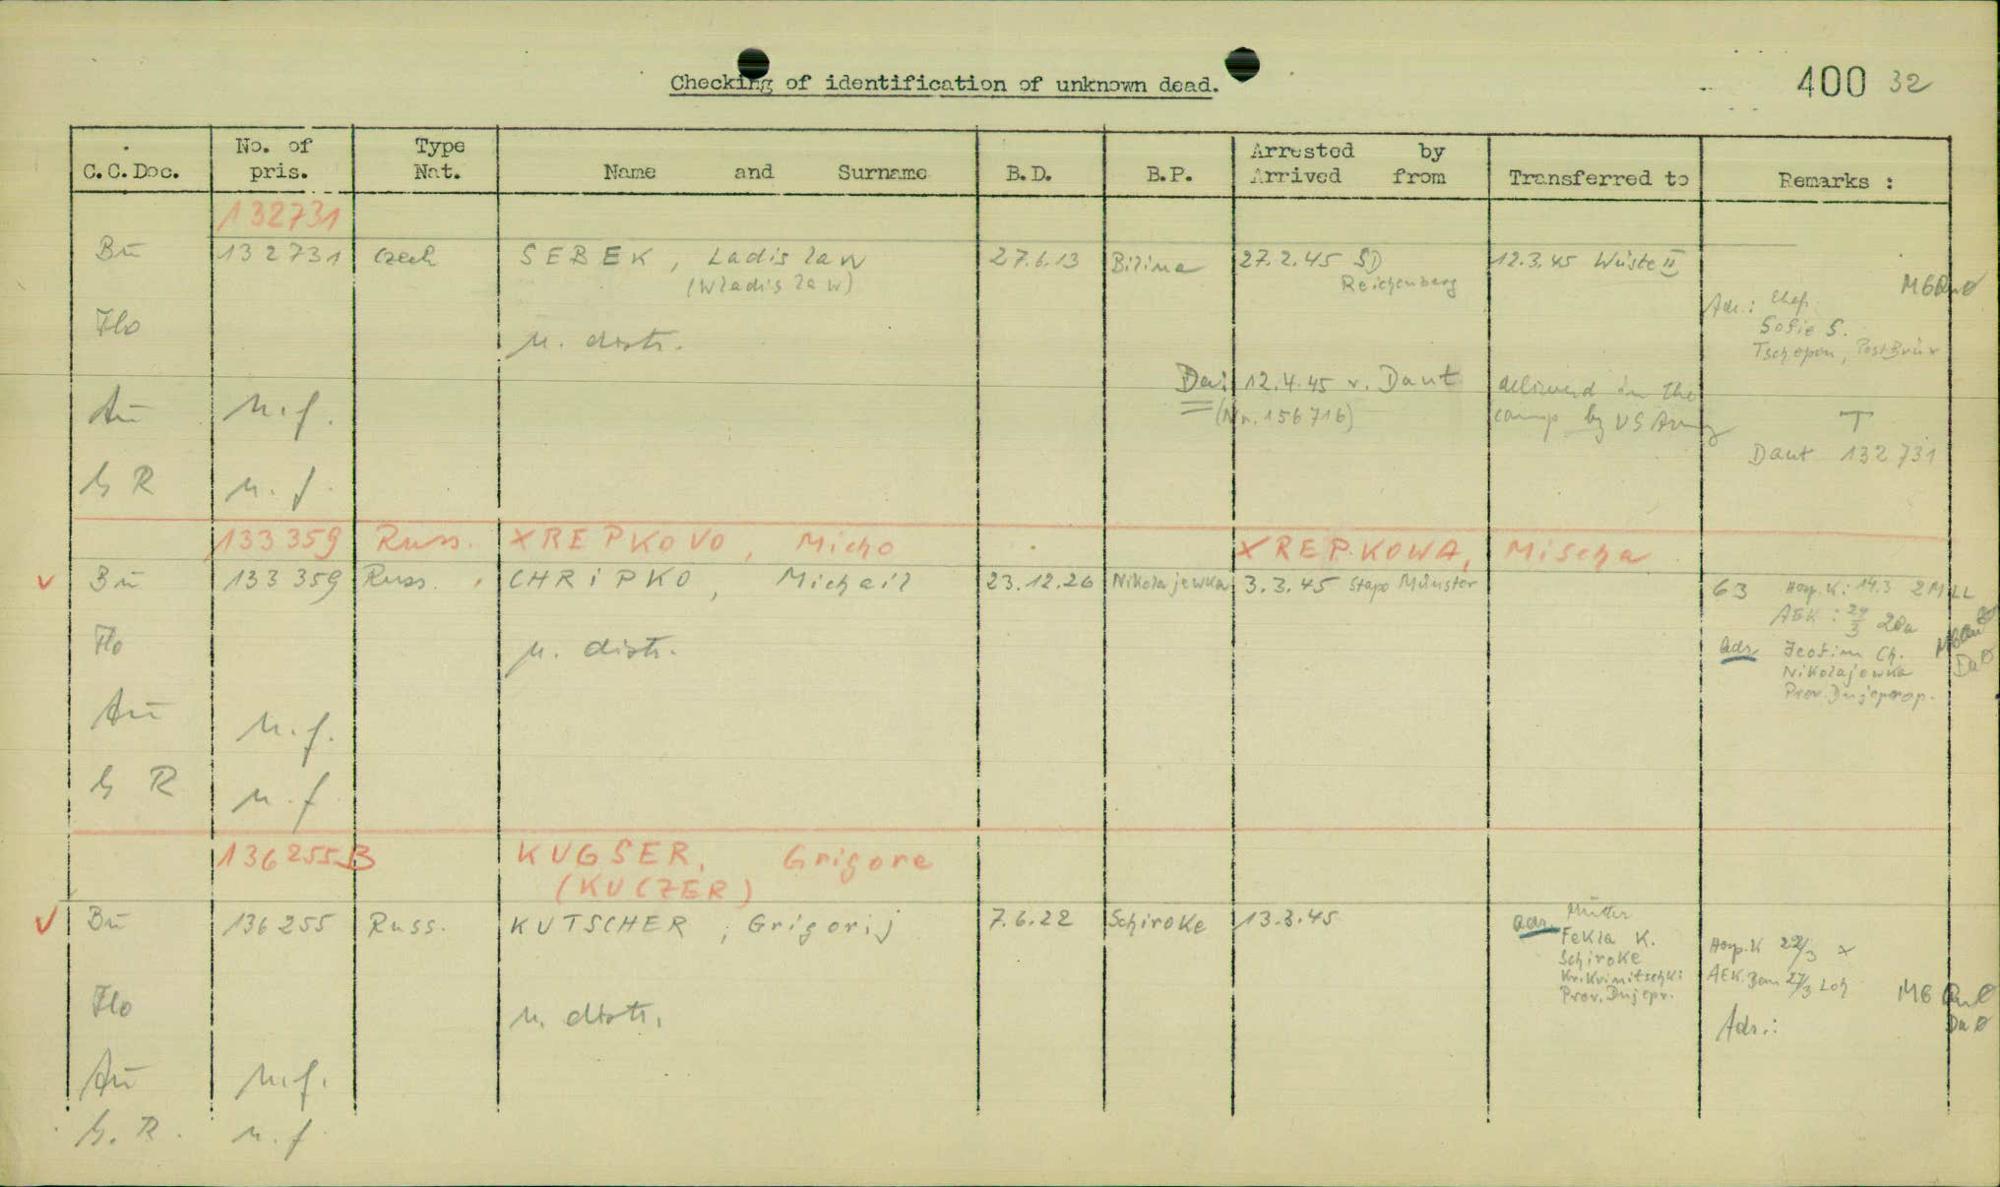 Checking of identification of unknown dead.
400 32
C.C.Doc. No. of pris. Type Nat. Name and Surname B.D. B.P. Arrested by Arrived from Transferred to Remarks :
132731
Bū 132731 Czech SEBEK, Ladislaw 27.6.13 Bilina 27.2.45 SD 12.3.45 Wüste II
(Wladislaw) Reichenberg
Adr.: Ehefr.
Flo Sofie S.
n. distr. Tschepon, Post Brüx
Da: 12.4.45 v. Daut delivered in the
Aū n.f. (Nr. 156716) camp by US Army T
Daut 132731
G R n.f.
133359 Russ. XREPKOVO, Micho XREPKOWA, Mischa
Bū 133359 Russ. CHRIPKO, Michail 23.12.26 Nikolajewka 3.3.45 Stapo Münster 63 Hosp. K: 14.3
AEK: 24/3 20a
Flo n. distr. adr. Feofim Ch.
Nikolajewka
Prov. Dnjeprop.
Aū n.f.
G R n.f.
136255 B KUGSER, Grigore
(KUCZER)
Bū 136255 Russ. KUTSCHER, Grigorij 7.6.22 Schiroke 13.3.45 adr. Mutter
Fekla K. Hosp. K 22/3 x
Schiroke
AEK. 27/3
Prov. Dnjepr.
Flo n. distr. Adr.:
Aū n.f.
G.R. n.f.